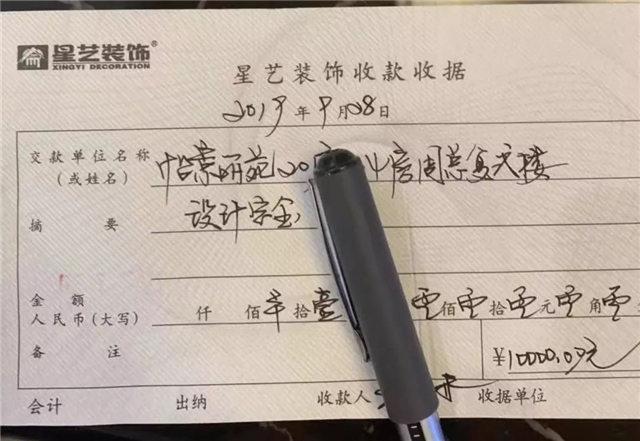 星艺装饰®
XINGYI DECORATION
星艺装饰收款收据
2019年9月28日
交款单位名称
(或姓名)
怡景研苑20 房周总复式楼
摘 要
设计定金
金额
人民币(大写) 仟 佰 拾壹 零佰零拾零元零角零
备 注
¥10000.00元
会计 出纳 收款人 收据单位